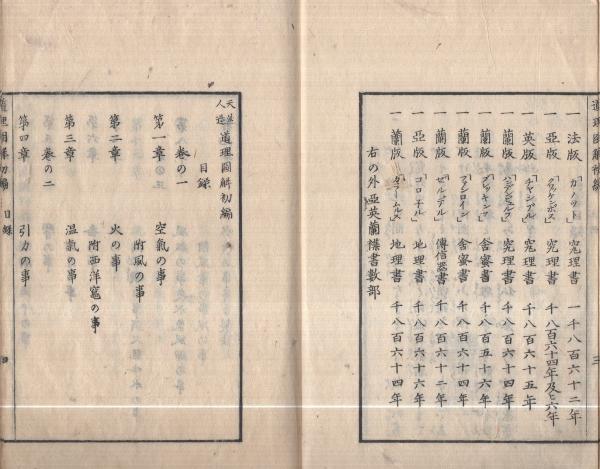 一 法版 「ガノット」 究理書 一千八百六十二年
一 亞版 「クワッケンボス」 究理書 千八百六十四年及ヒ六年
一 英版 「チャンブル」 究理書 千八百六十五年
一 蘭版 究理書 千八百六十四年
一 蘭版 舎蜜書 千八百五十六年
一 蘭版 舎蜜書 千八百六十四年
一 蘭版 傳信器書 千八百六十二年
一 亞版 「コロ子ル」 地理書 千八百六十六年
一 蘭版 地理書 千八百六十四年
右の外亞英蘭襍書數部
天然人造 道理圖解初編
目録
巻の一
第一章 空氣の事
附風の事
第二章 火の事
附西洋竈の事
第三章 温氣の事
巻の二
第四章 引力の事
道理圖解初編 目録